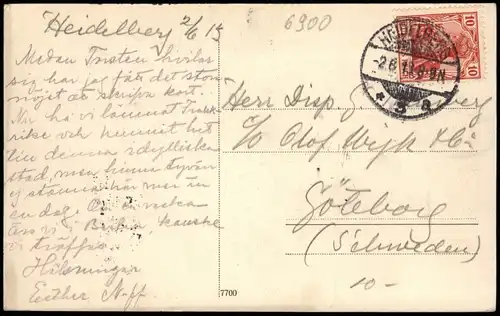 Heidelberg 2/6 15
6900
Medan Torsten hvilar
sig har jag fått det stora
nöjet att skrifva kort.
Nu ha vi lämnat Frank-
rike och kommit hit
till denna idylliska
stad, men hinna tyvärr
ej stanna här mer än
en dag. Om en vecka
äro vi i Berlin, kanske
vi träffas.
Hälsningar
Esther N-ff.
HEIDELBERG
-2.6. 8-9N
* 3 a
10 10
Herr Disp.
c/o Olof Wijk &
Göteborg
(Schweden)
10-
7700